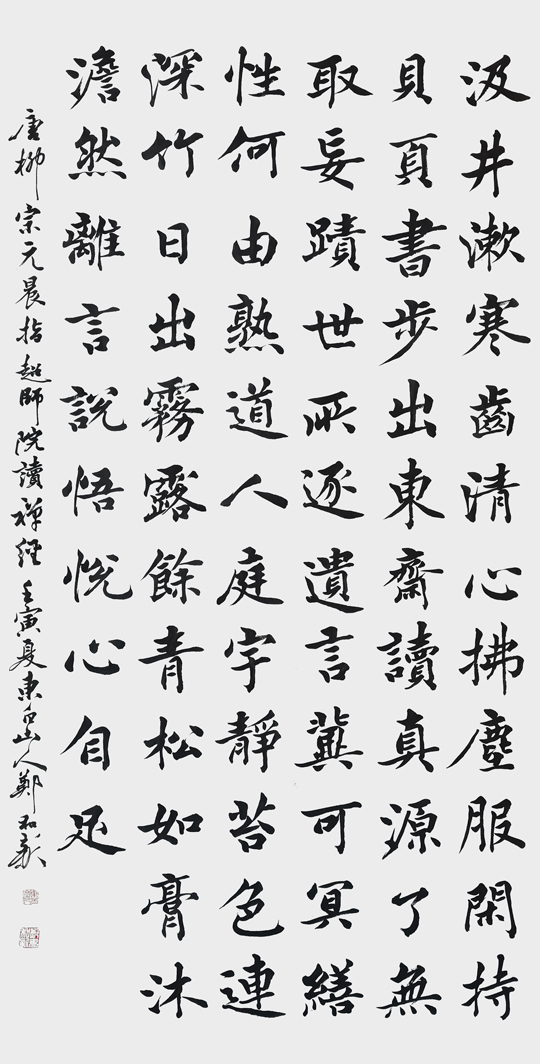 汲井漱寒齒清心拂塵服閑持
貝頁書步出東齋讀真源了無
取妄蹟世所逐遺言冀可冥繕
性何由熟道人庭宇靜苔色連
深竹日出霧露餘青松如膏沐
澹然離言說悟悅心自足
唐柳宗元晨指超師院讀禪經 壬寅夏東白山人鄭和